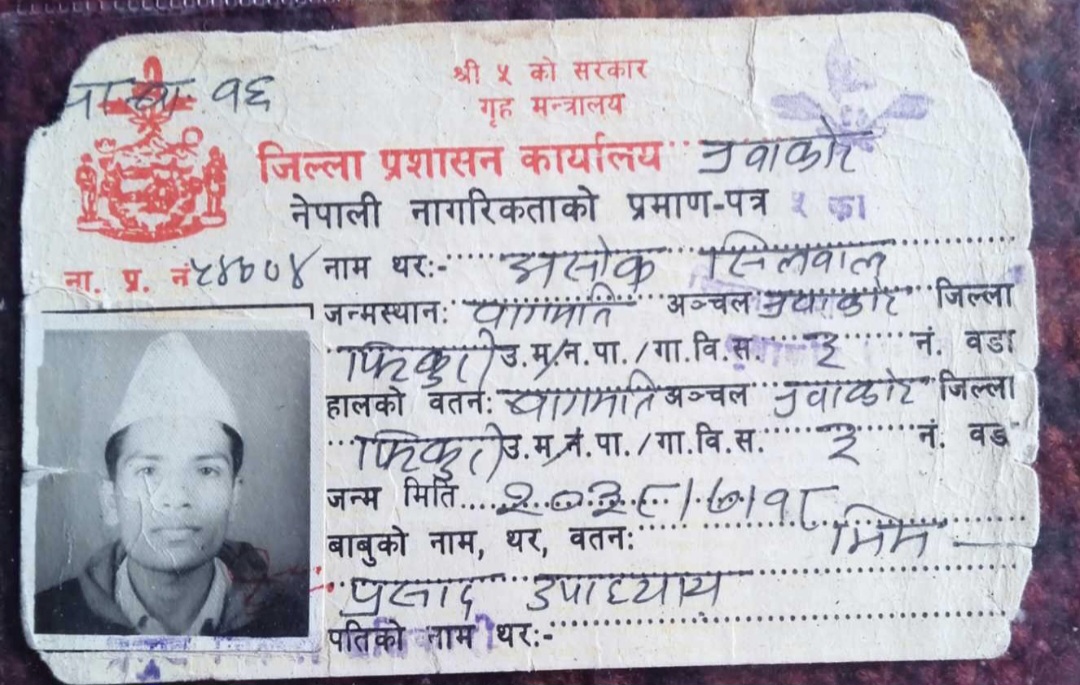 श्री ५ को सरकार
गृह मन्त्रालय
१६
जिल्ला प्रशासन कार्यालय नुवाकोट
नेपाली नागरिकताको प्रमाण-पत्र
ना. प्र. नं नाम थरः- असोक सिलवाल
जन्मस्थानः वागमति अञ्चल नुवाकोट जिल्ला
फिकुरी उ.म/न.पा./गा.वि.स. ३ नं. वडा
हालको वतनः वागमति अञ्चल नुवाकोट जिल्ला
फिकुरी उ.म/न.पा./गा.वि.स. ३ नं. वडा
जन्म मिति
बाबुको नाम, थर, वतनः भिम
प्रसाद उपाध्याय
पतिको नाम थरः-